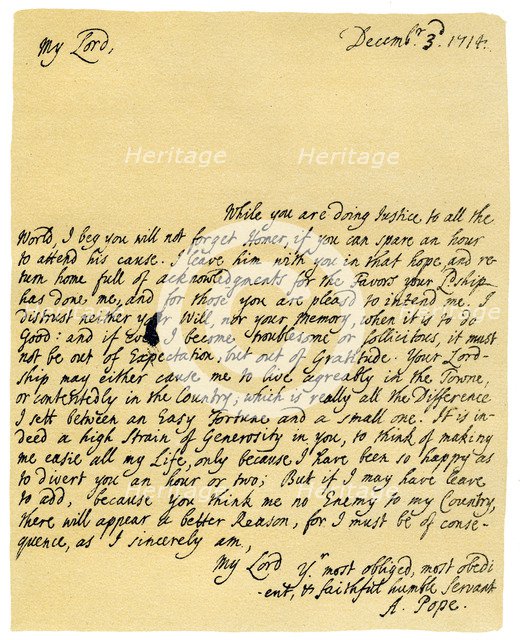 My Lord,
Decembr. 3d. 1714.
While you are doing Justice to all the
World, I beg you will not forget Homer, if you can spare an hour
to attend his cause. I leave him with you in that hope, and re-
turn home full of acknowledgments for the Favors your Ldship
has done me, and for those you are pleasd to intend me. I
distrust neither your Will, nor your Memory, when it is to do
Good: and if ever I become troublesome or sollicitous, it must
not be out of Expectation, but out of Gratitude. Your Lord-
ship may either cause me to live agreably in the Towne,
or contentedly in the Country, which is really all the Difference
I sett between an Easy Fortune and a small one. It is in-
deed a high Strain of Generosity in you, to think of making
me easie all my Life, only because I have been so happy as
to divert you an hour or two; But if I may have leave
to add, because you think me no Enemy to my Country,
there will appear a better Reason, for I must be of conse-
quence, as I sincerely am,
My Lord Yr. most obliged, most obedi
-ent, & faithfull humble Servant
A. Pope.
Heritage
Heritage
Heritage
Heritage
Heritage
Heritage